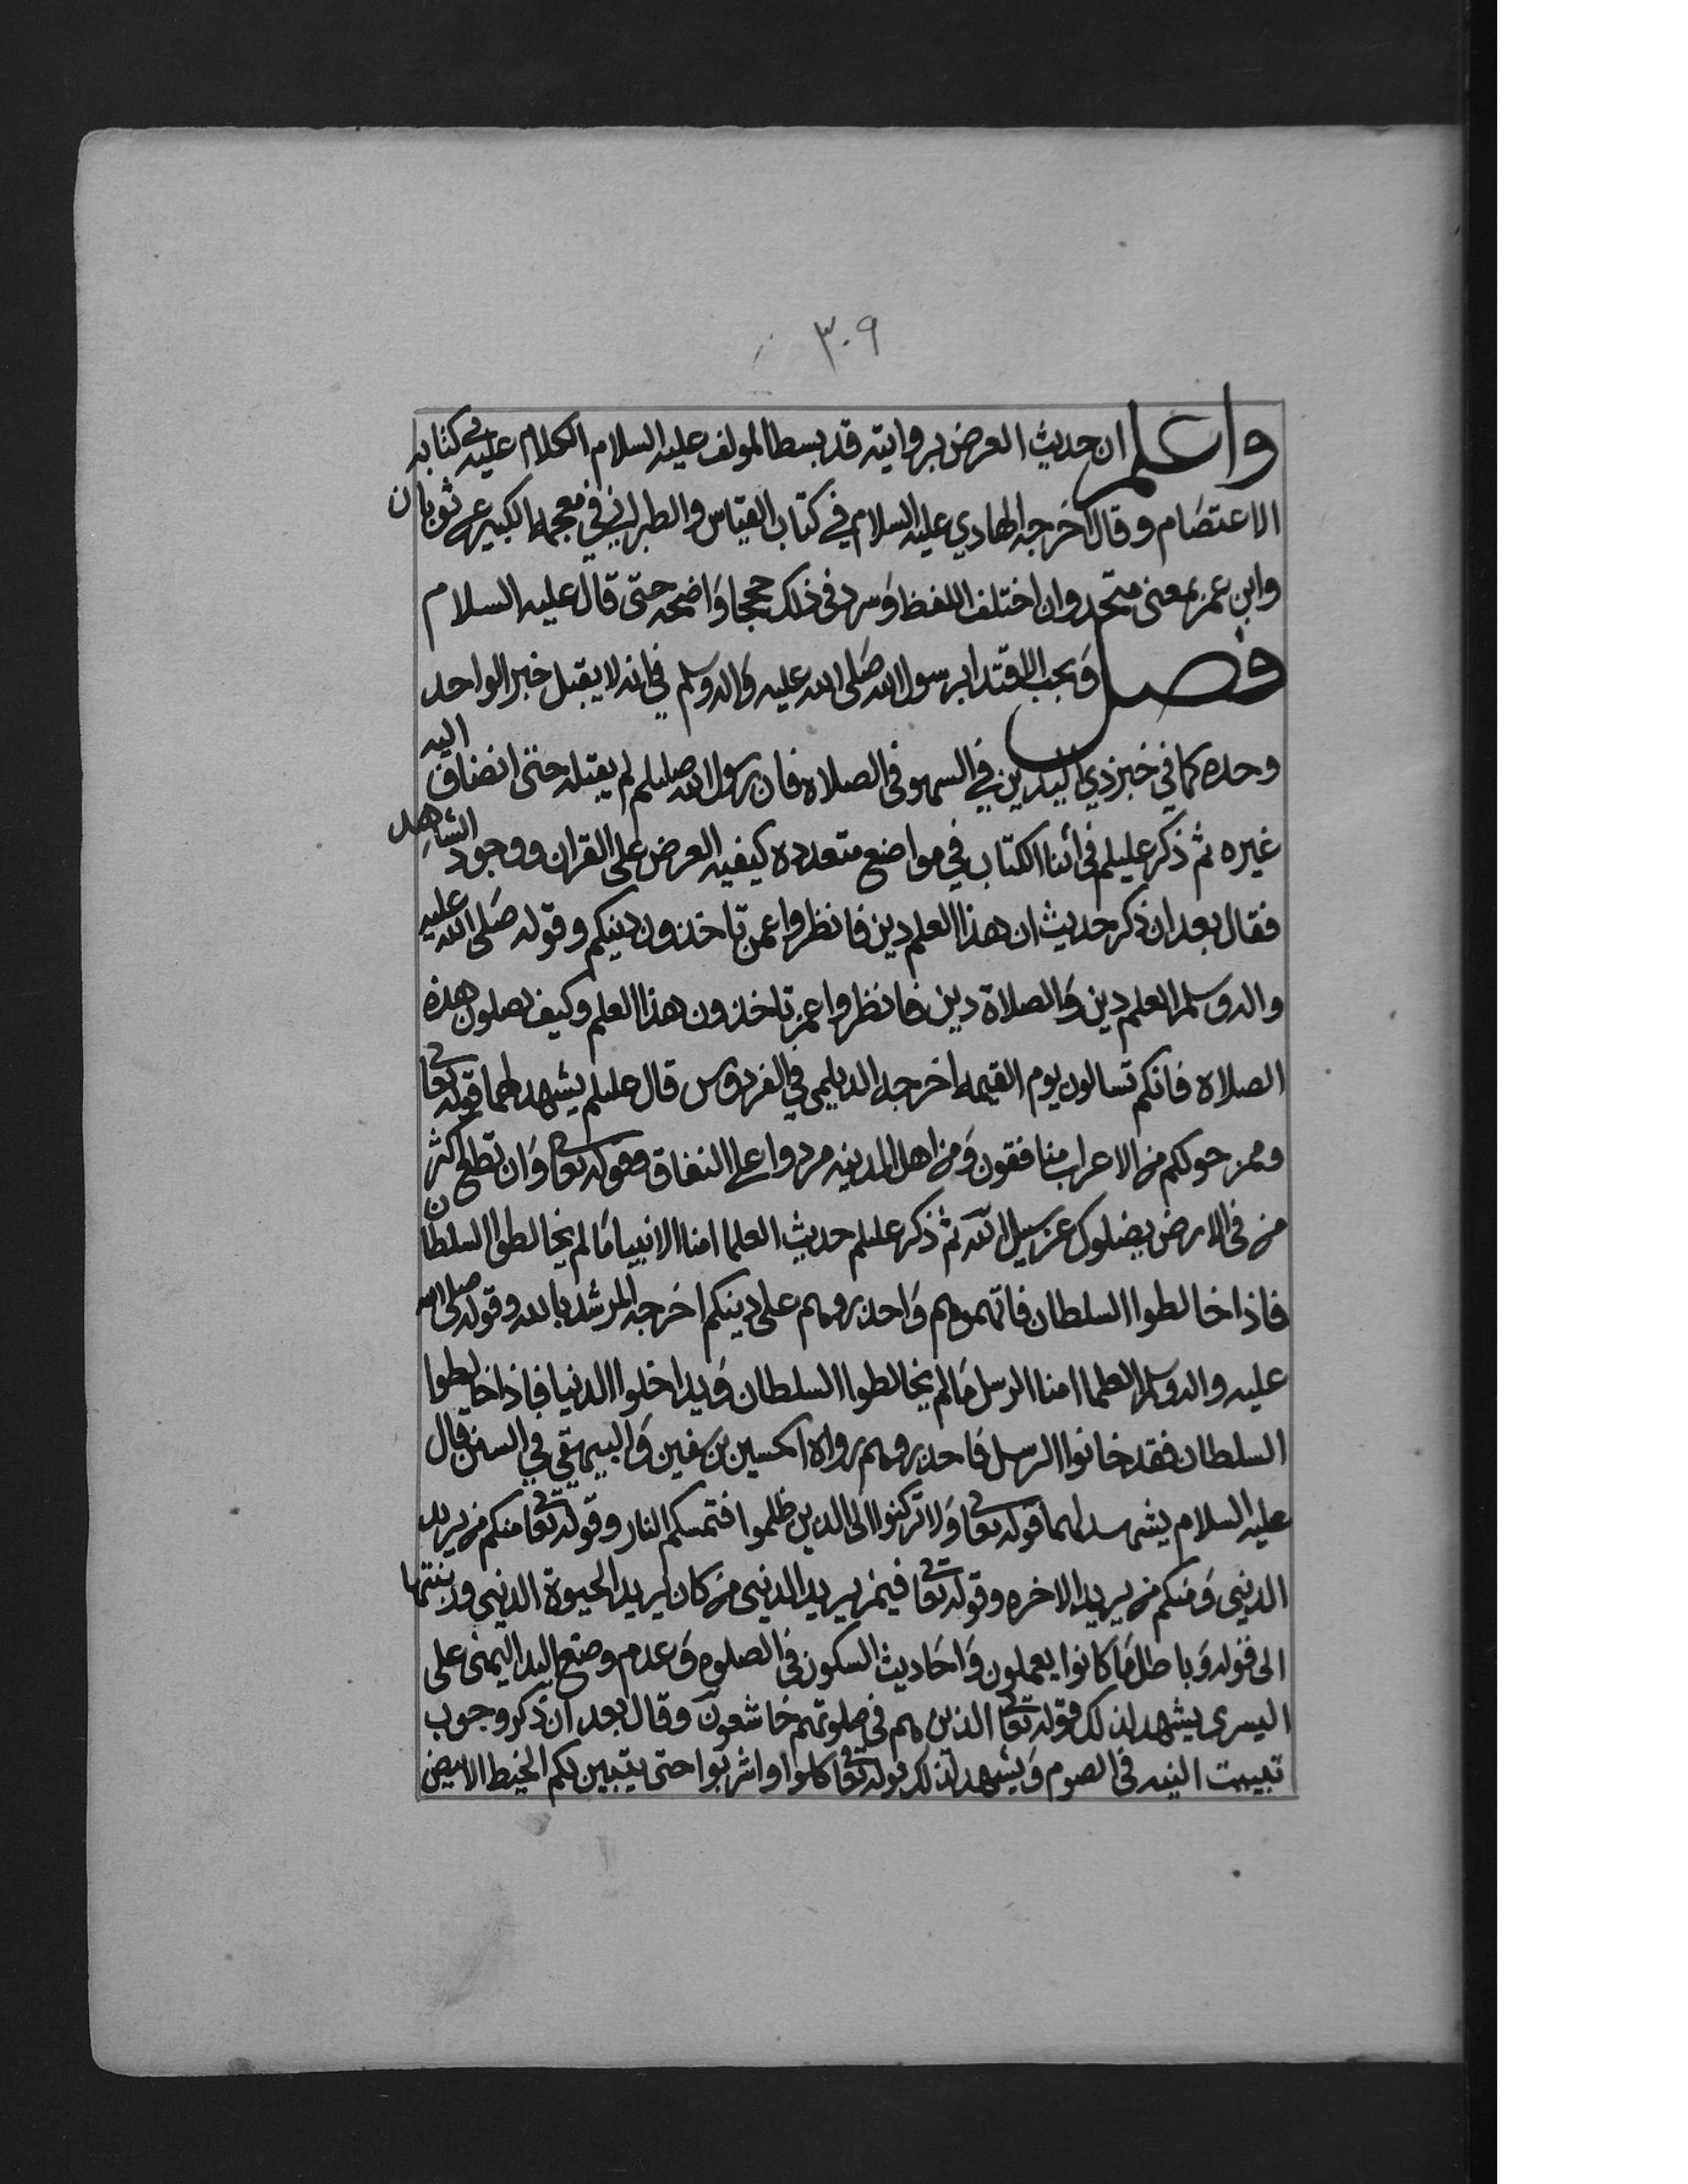 ٣٠٩
واعلم ان حديث العرض بروايته قد بسط المولف عليه السلام الكلام عليه في كتابه
الاعتصام وقال اخرجه الهادي عليه السلام في كتاب القياس والطبراني في معجمه الكبير عن ثوبان
وابن عمر بمعنى متحد وان اختلف اللفظ وسرد في ذلك حججا واضحه حتى قال عليه السلام
فصل ويجب الاقتدا برسول الله صلى الله عليه واله وسلم في انه لا يقبل خبر الواحد
وحده كما في خبر ذي اليدين في السهو في الصلاه فان رسول الله صللم لم يقبله حتى انضاف اليه
غيره ثم ذكر عليلم في أثنا الكتاب في مواضع متعدده كيفيه العرض على القران ووجود الشاهد
فقال بعد ان ذكر حديث ان هذا العلم دين فانظروا عمن تاخذون دينكم وقوله صلى الله عليه
واله وسلم العلم دين والصلاة دين فانظروا عمن تاخذون هذا العلم وكيف تصلون هذه
الصلاه فانكم تسالون يوم القيمه اخرجه الديلمي في الفردوس قال عليلم يشهد لهما قوله تعا
وممن حولكم من الاعراب منافقون ومن اهل المدينه مردوا على النفاق وقوله تعا وان تطع اكثر
من في الارض يضلوك عن سبيل الله ثم ذكر عليلم حديث العلما امنا الانبيا ما لم يخالطوا السلطان
فاذا خالطوا السلطان فاتهموهم واحذروهم على دينكم اخرجه المرشد بالله وقوله صلى الله
عليه واله وسلم العلما امنا الرسل ما لم يخالطوا السلطان ويداخلوا الدنيا فاذا خالطوا
السلطان فقد خانوا الرسل فاحذروهم رواه الحسين بن سفين والبيهقي في السنن قال
عليه السلام يشهد لهما قوله تعا ولا تركنوا الى الذين ظلموا فتمسكم النار وقوله تعا منكم من يريد
الدنيى ومنكم من يريد الاخره وقوله تعا فيمن يريد الدنيى من كان يريد الحيوة الدنيى وزينتها
الى قوله وباطل ما كانوا يعملون واحاديث السكون في الصلوه وعدم وضع اليد اليمنى على
اليسرى يشهد لذلك قوله تعا الذين هم في صلوتهم خاشعون وقال بعد ان ذكر وجوب
تبييت النيه في الصوم ويشهد لذلك قوله تعا كلوا واشربوا حتى يتبين لكم الخيط الابيض